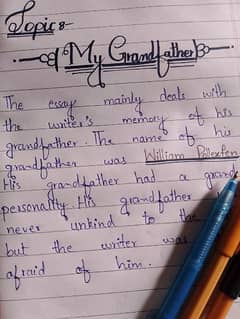 Topic 8-
"My Grandfather"
The essay mainly deals with
the writer's memory of his
grandfather. The name of his
grandfather was William Pollexfen
His grandfather had a grand
personality. His grandfather
never unkind to the
but the writer was
afraid of him.